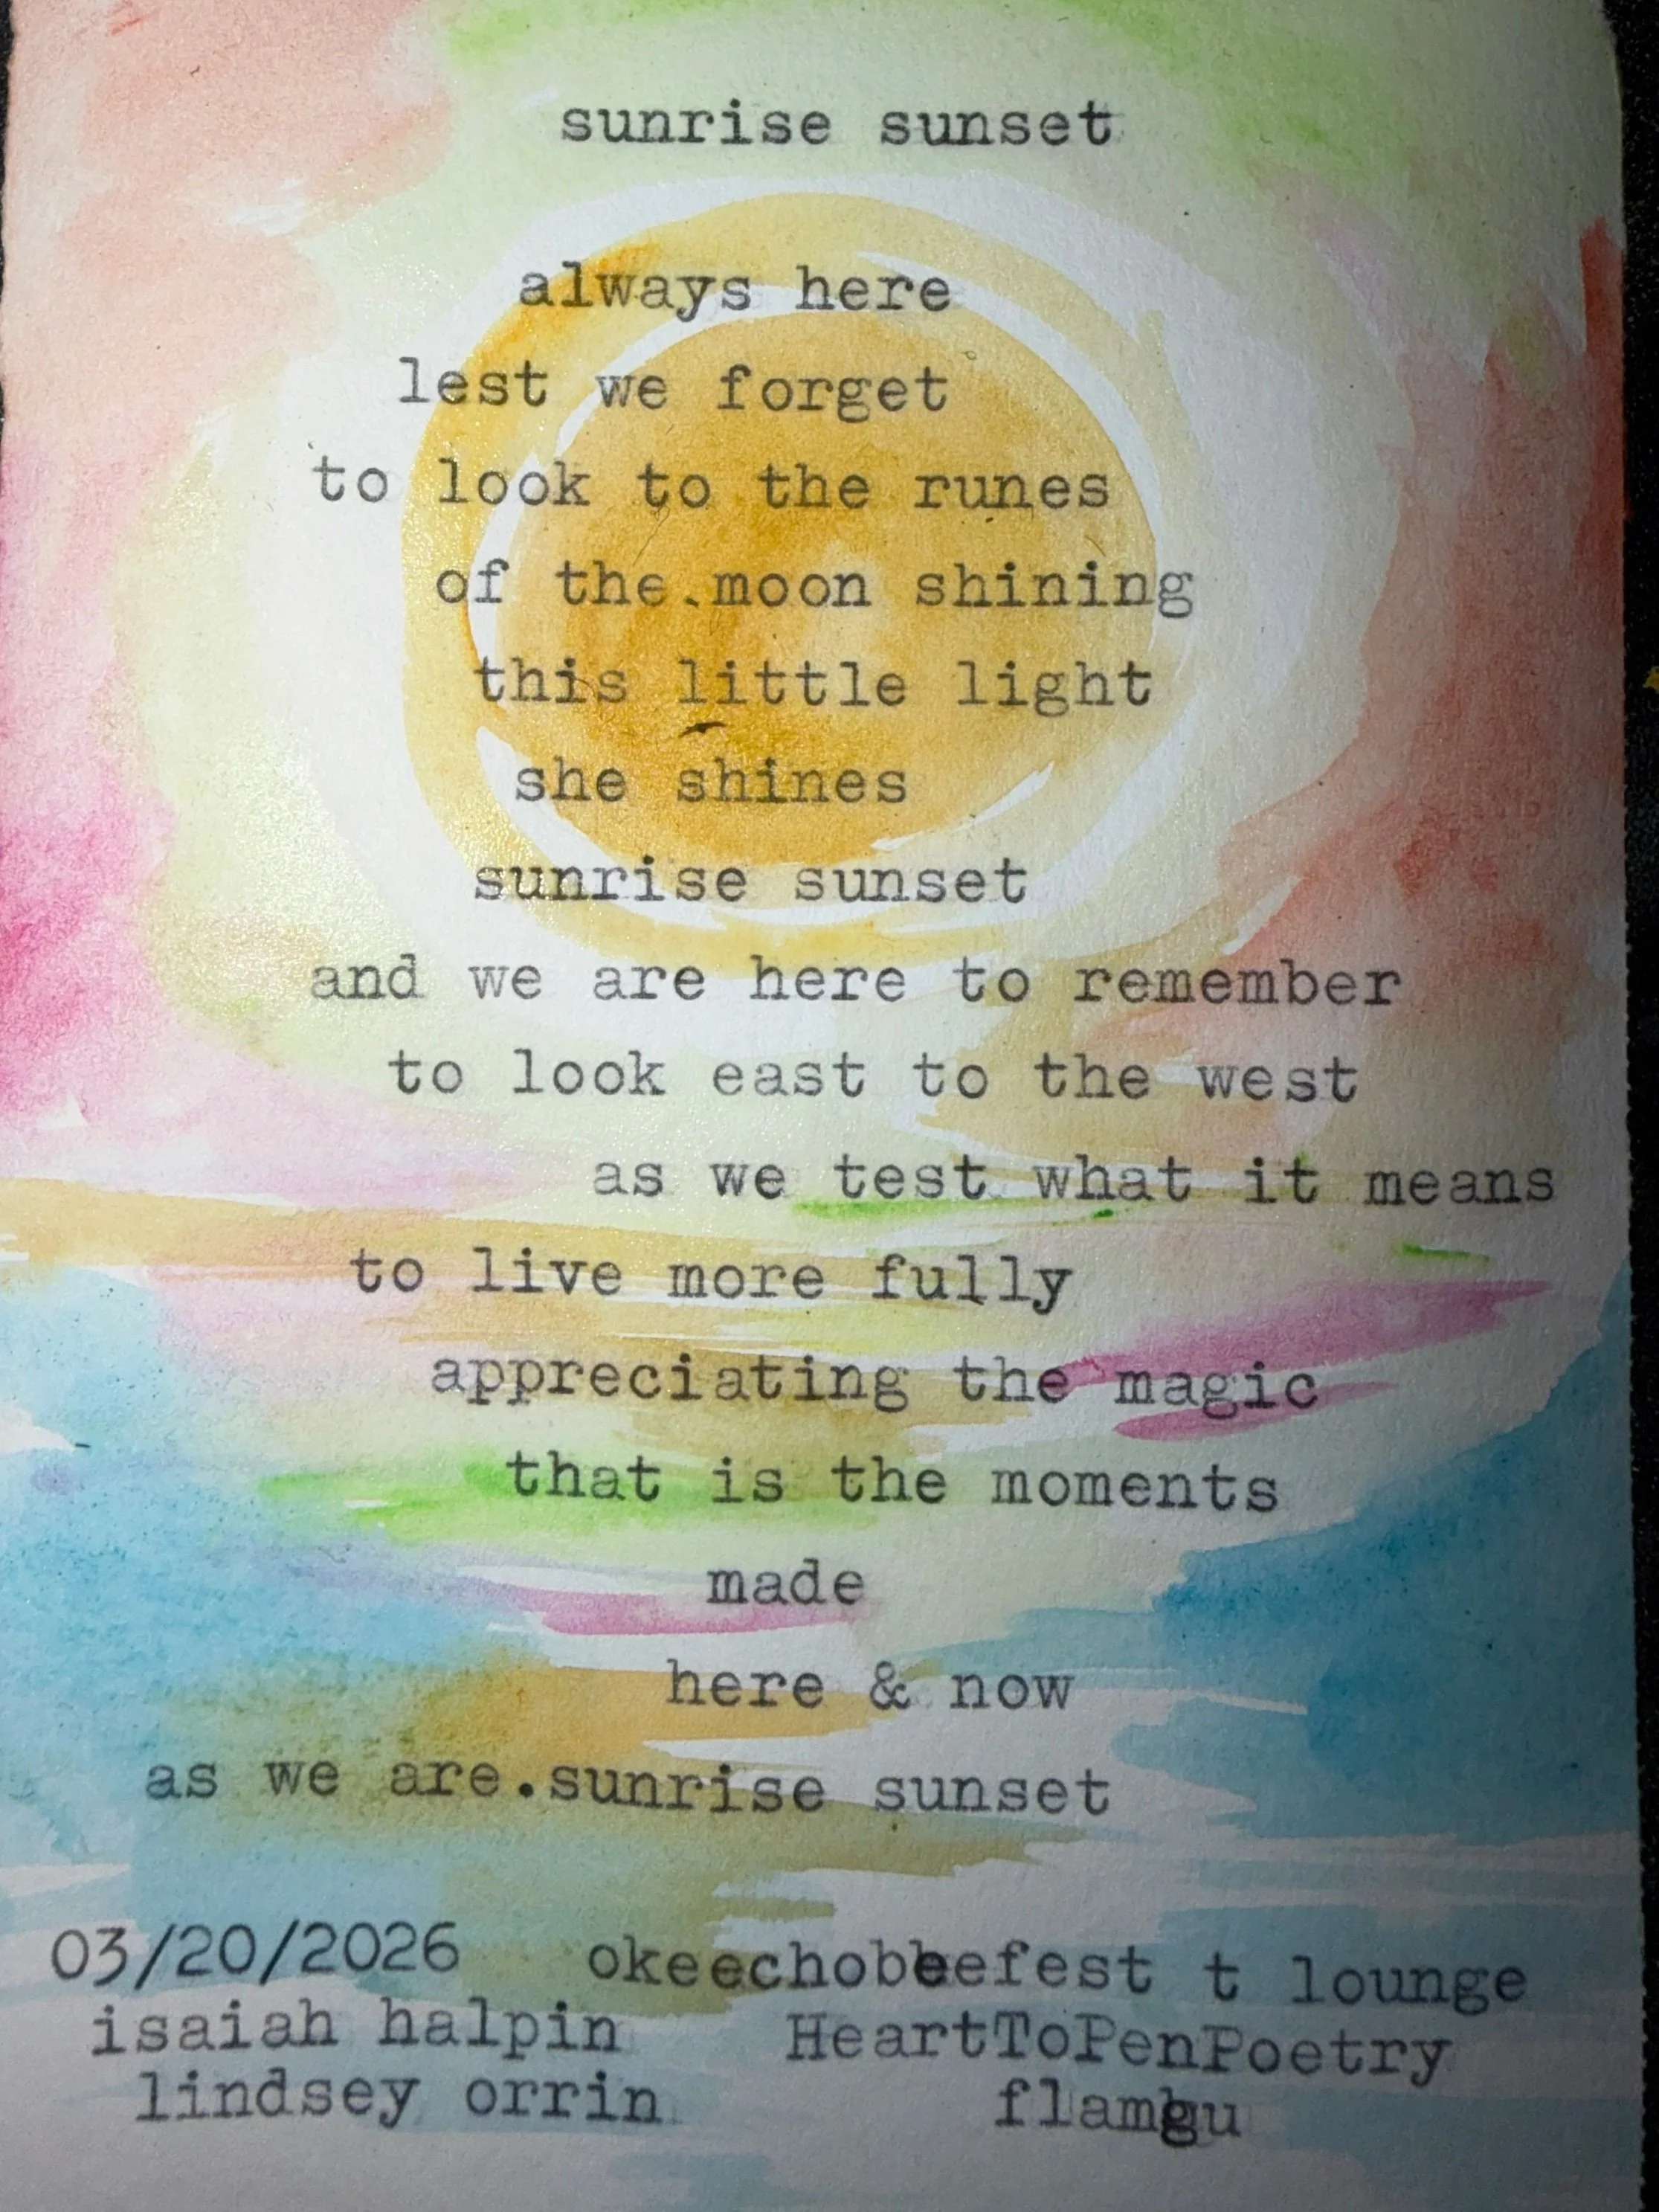 sunrise sunset
always here
lest we forget
to look to the runes
of the.moon shining
this little light
she shines
sunrise sunset
and we are here to remember
to look east to the west
as we test what it means
to live more fully
appreciating the magic
that is the moments
made
here & now
as we are.sunrise sunset
03/20/2026 okeechobeefest t lounge
isaiah halpin HeartToPenPoetry
lindsey orrin